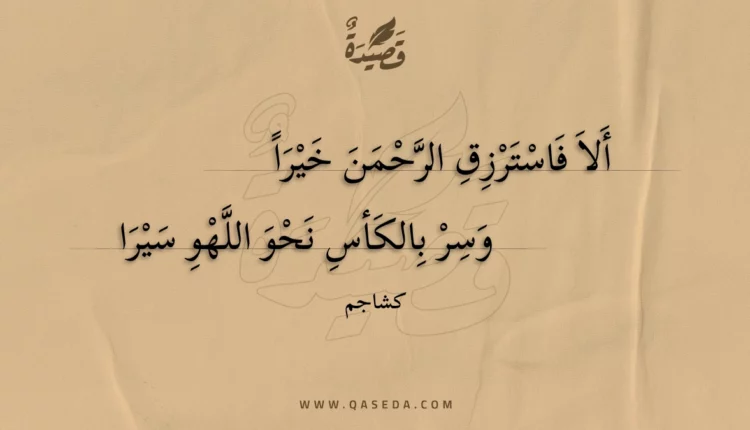 قَصِيْدَةٌ
أَلاَ فَاسْتَرْزِقِ الرَّحْمَنَ خَيْرَاً
وَسِرْ بِالكَأسِ نَحْوَ اللَّهْوِ سَيْرَا
كشاجم
WWW.QASEDA.COM